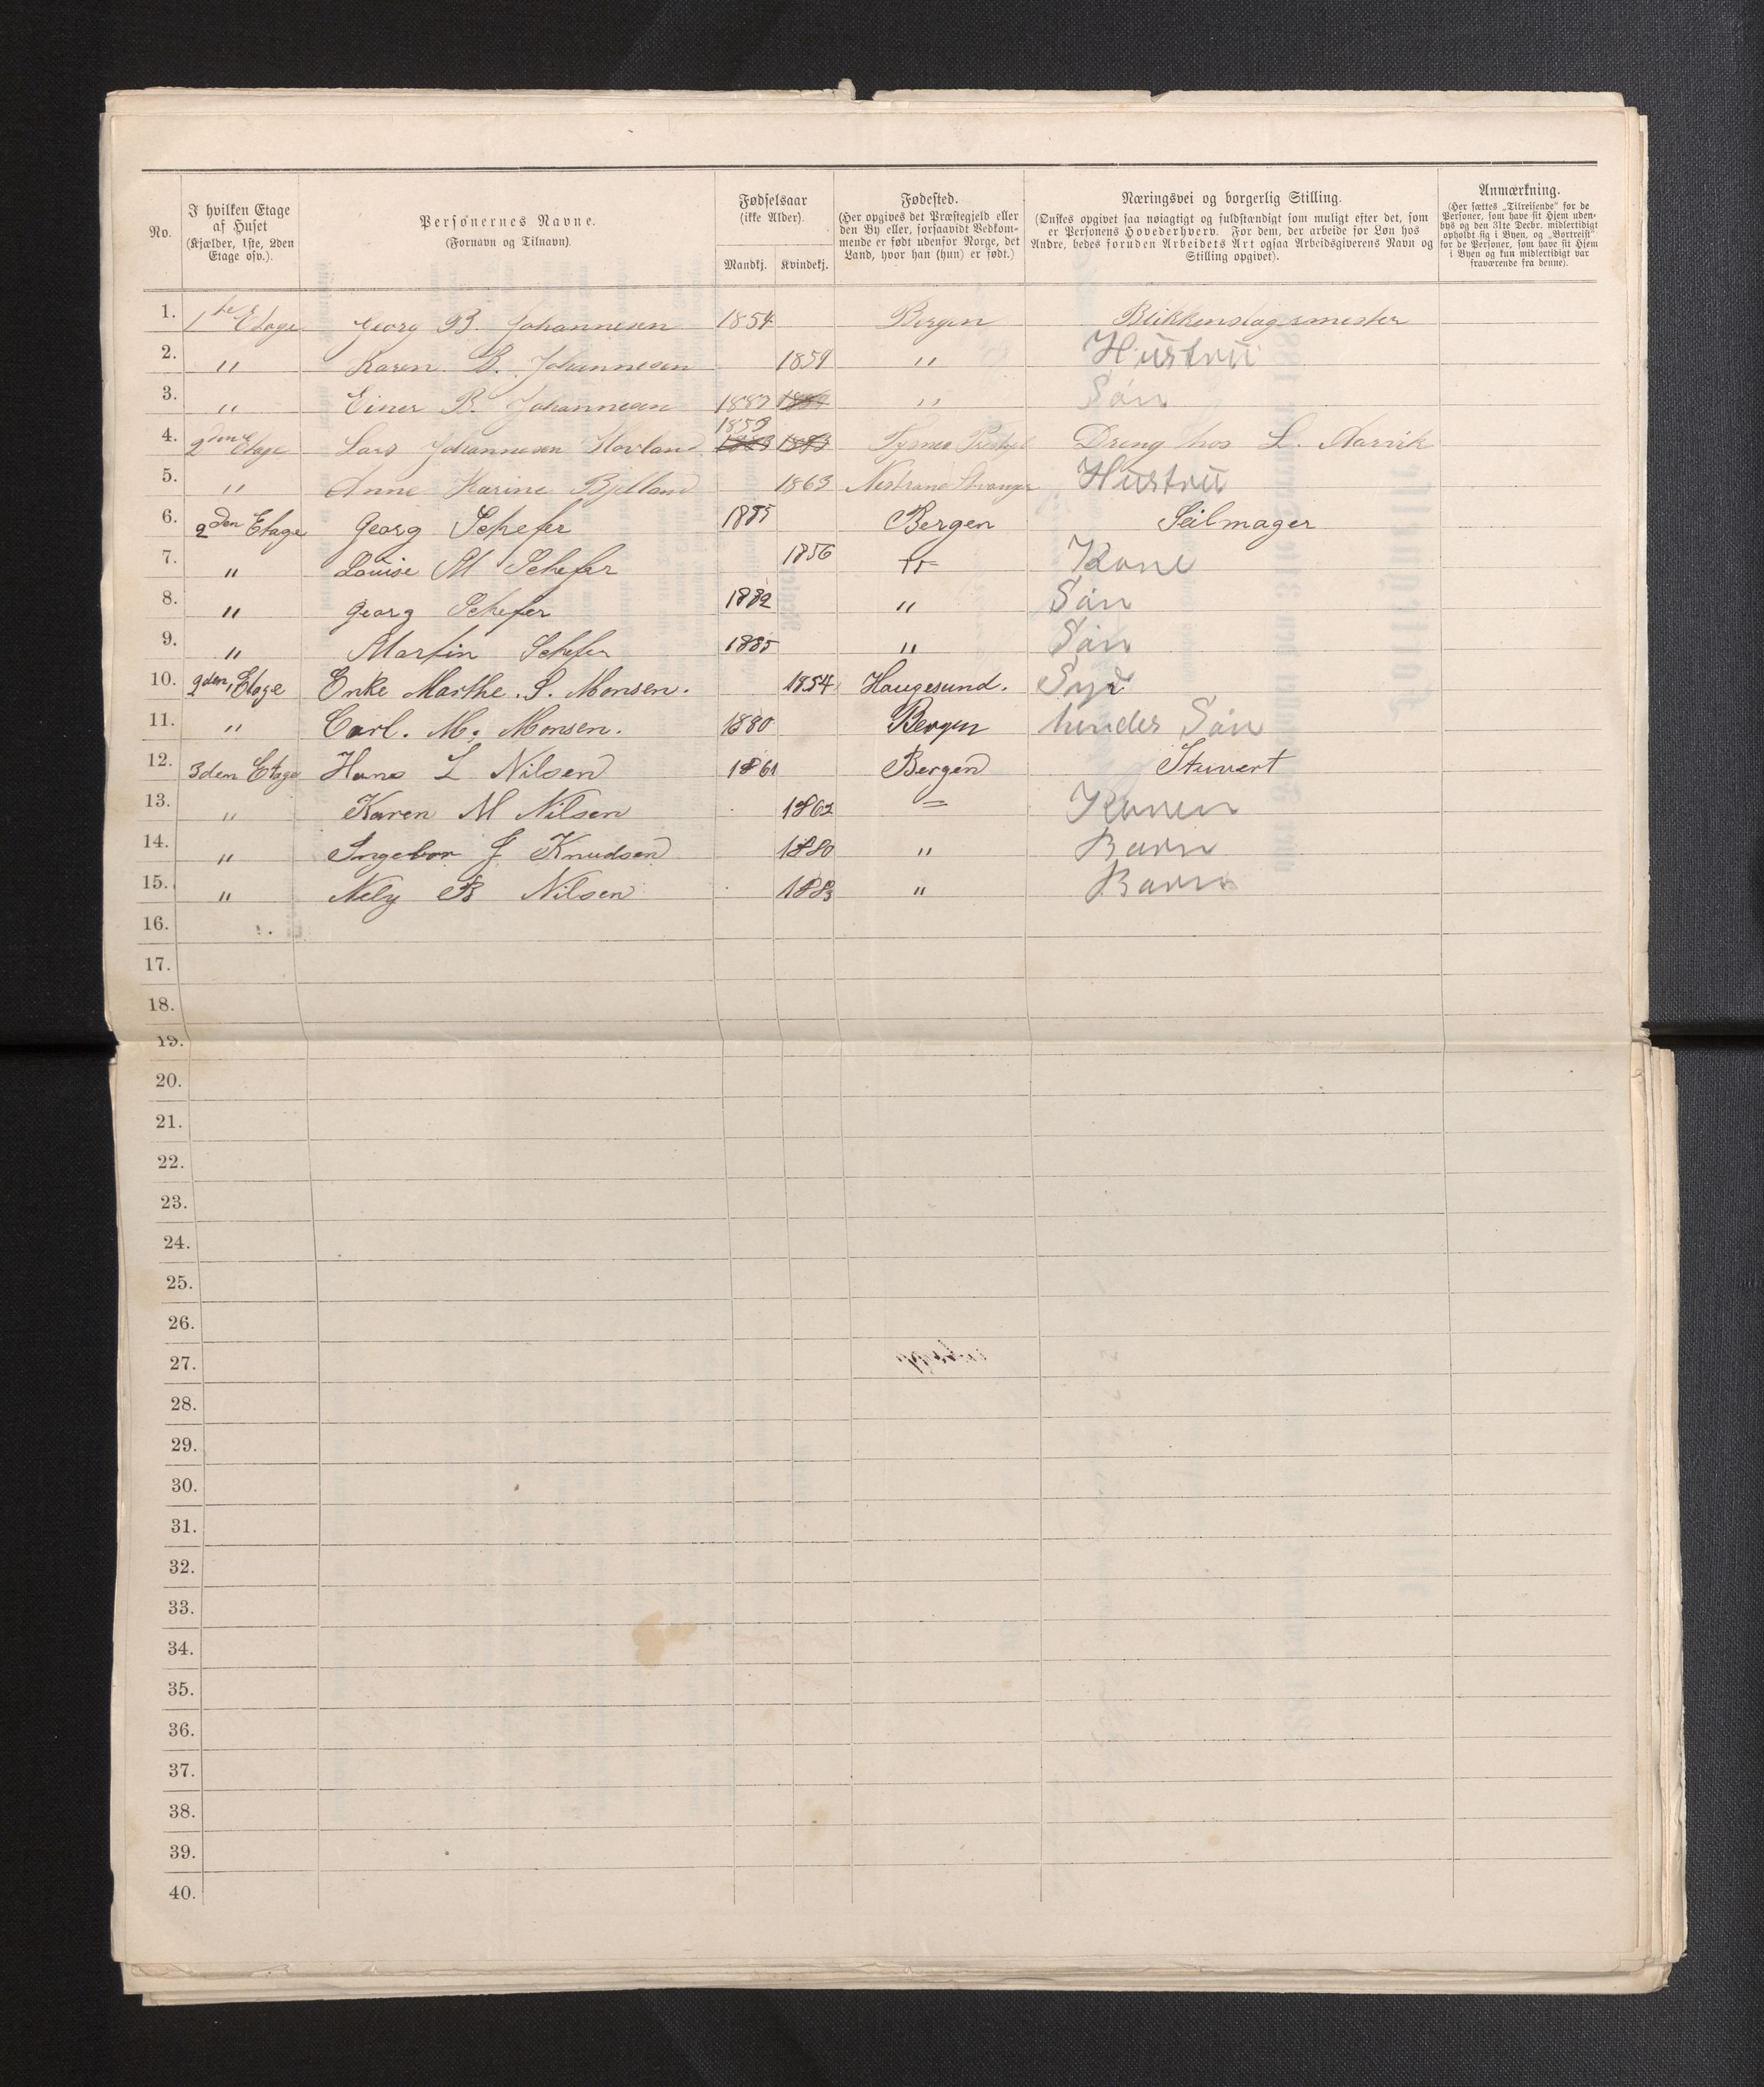 No.
I hvilken Etage af Huset (Kjælder, 1ste, 2den Etage osv.).
Personernes Navne. (Fornavn og Tilnavn).
Fødselsaar (ikke Alder).
Mandkj. Kvindekj.
Fødested. (Her opgives det Præstegjeld eller den By eller, forsaavidt Vedkommende er født udenfor Norge, det Land, hvor han (hun) er født.)
Næringsvei og borgerlig Stilling. (Ønskes opgivet saa nøiagtigt og fuldstændigt som muligt efter det, som er Personens Hovederhverv. For dem, der arbeide for Løn hos Andre, bedes foruden Arbeidets Art ogsaa Arbeidsgiverens Navn og Stilling opgivet).
Anmærkning. (Her sættes „Tilreisende“ for de Personer, som have sit Hjem udenbys og den 31te Decbr. midlertidigt opholdt sig i Byen, og „Bortreist“ for de Personer, som have sit Hjem i Byen og kun midlertidigt var fraværende fra denne).
1. 1ste Etage Georg B. Johannesen 1854 Bergen Blikkenslagsmester
2. " Karen B. Johannesen 1859 " Hustru
3. " Einer B. Johannesen 1887 " Søn
4. 2den Etage Lars Johannesen Hovland 1859 1883 1883 Dreng hos L. Aarvik
5. " Anne Karine Bjelland 1863 Hustru
6. 2den Etage Georg Schefer 1885 Bergen Seilmager
7. " Louise M Schefer 1856 " Kone
8. " Georg Schefer 1882 " Søn
9. " Martin Schefer 1885 " Søn
10. 2den, Etage Enke Marthe. S. Monsen. 1854 Haugesund. Syr
11. " Carl. M. Monsen. 1880 Bergen hendes Søn
12. 3dem Etage Hans L Nilsen 1861 Bergen Stuvert
13. " Karen M Nilsen 1862 = Konen
14. " Ingebor J Knudsen 1880 " Barn
15. " Nely B Nilsen 1883 " Barn
16.
17.
18.
19.
20.
21.
22.
23.
24.
25.
26.
27.
28.
29.
30.
31.
32.
33.
34.
35.
36.
37.
38.
39.
40.